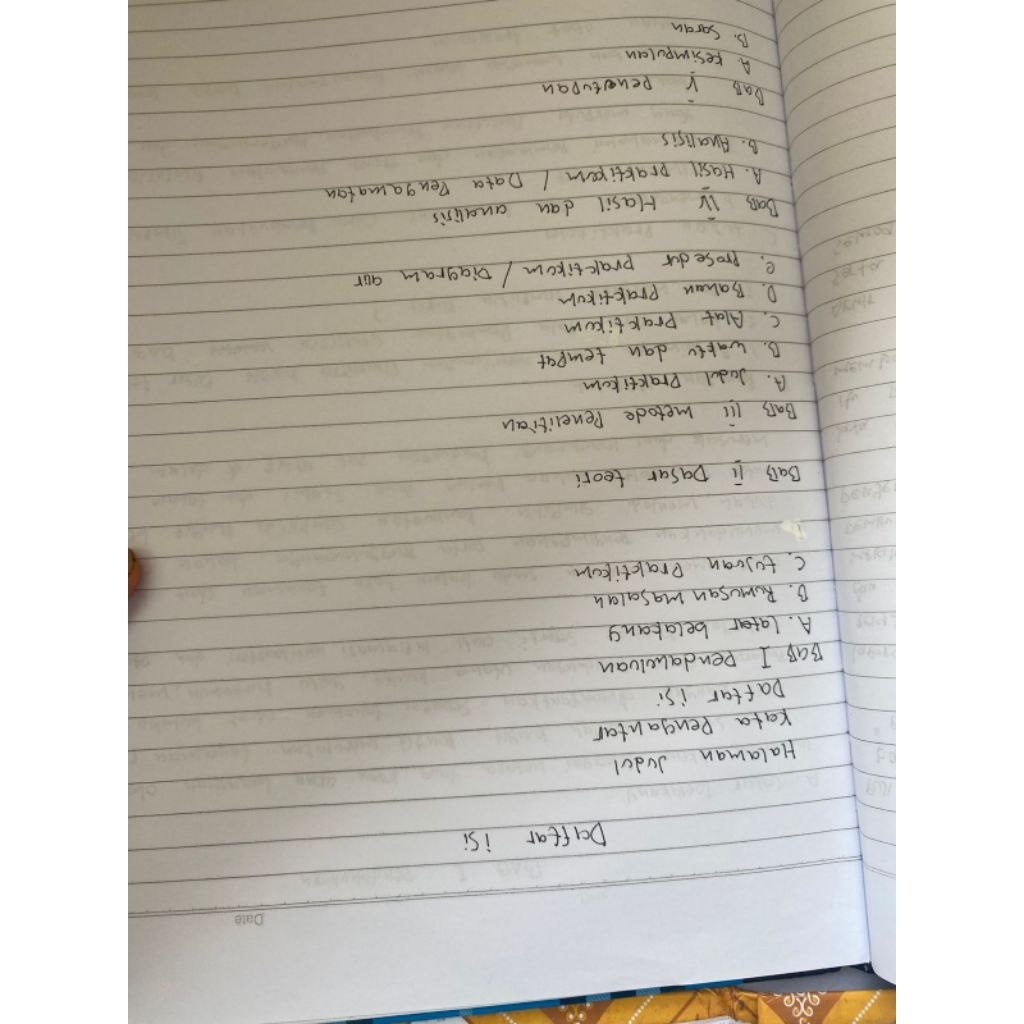 Date
Daftar isi
Halaman Judul
Kata Pengantar
Daftar isi
BAB I Pendahuluan
A. Latar belakang
B. Rumusan masalah
C. tujuan Praktikum
BAB II Dasar teori
BAB III metode Penelitian
A. Judul Praktikum
B. waktu dan tempat
C. Alat Praktikum
D. Bahan Praktikum
e. Prosedur praktikum / Diagram alir
BAB IV Hasil dan analisis
A. Hasil praktikum / Data Pengamatan
B. Analisis
BAB V Penutupan
A. Kesimpulan
B. Saran